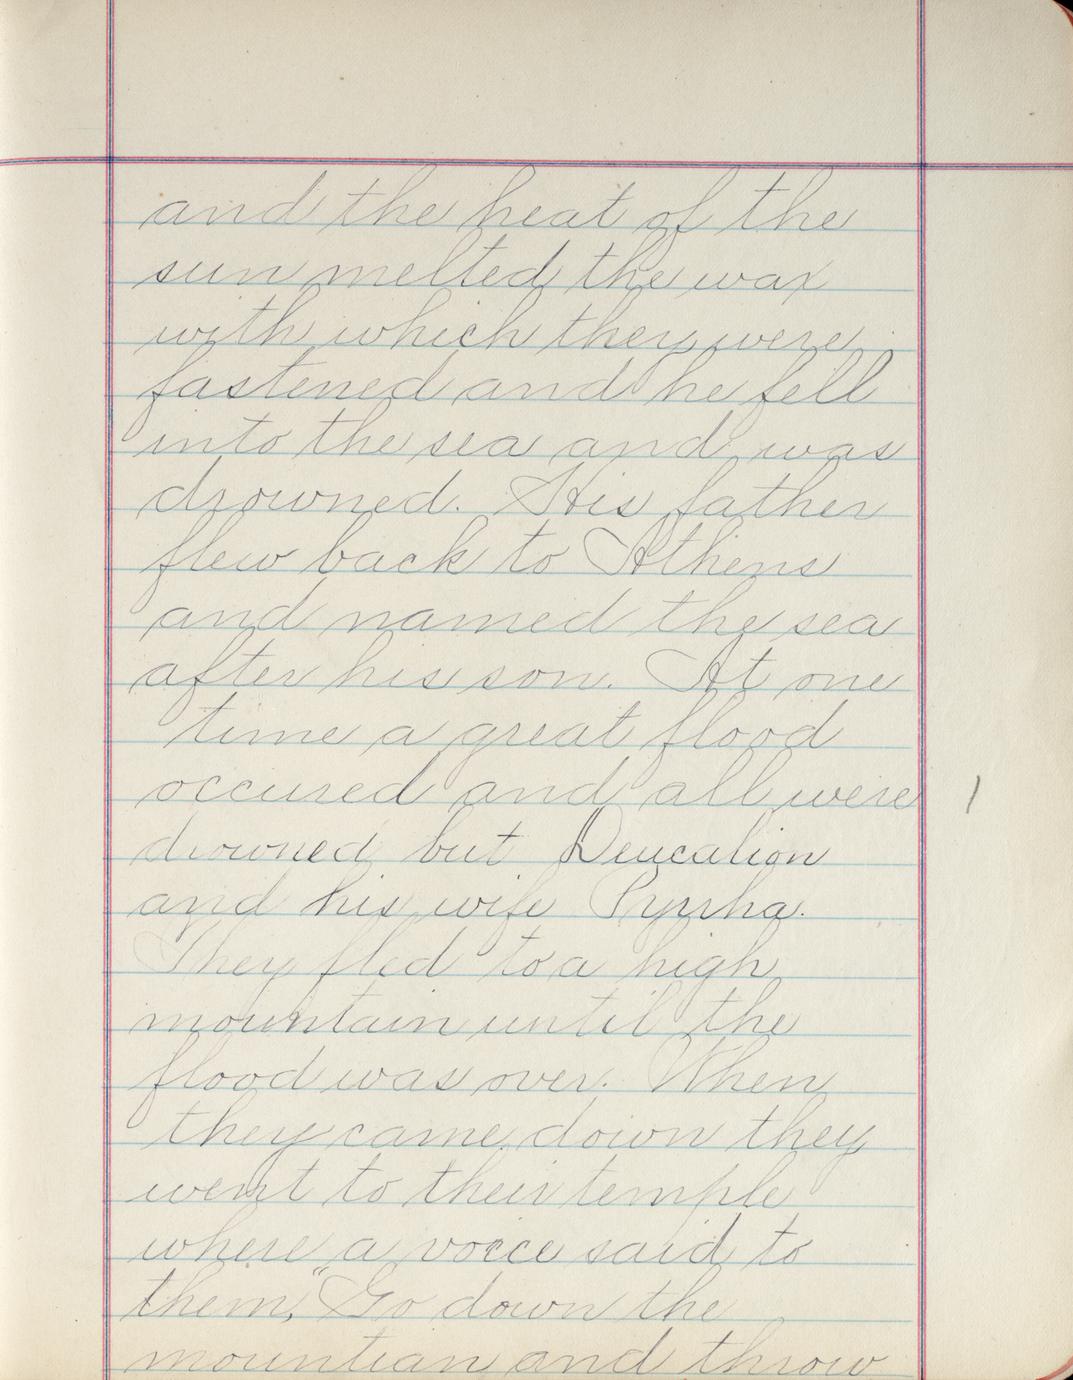 and the heat of the
sun melted the wax
with which they were
fastened and he fell
into the sea and was
drowned. His father
flew back to Athens
and named the sea
after his son. At one
time a great flood
occured and all were
drowned but Deucalion
and his wife Pyrrha.
They fled to a high
mountain until the
flood was over. When
they came down they
went to their temple
where a voice said to
them, "Go down the
mountian and throw